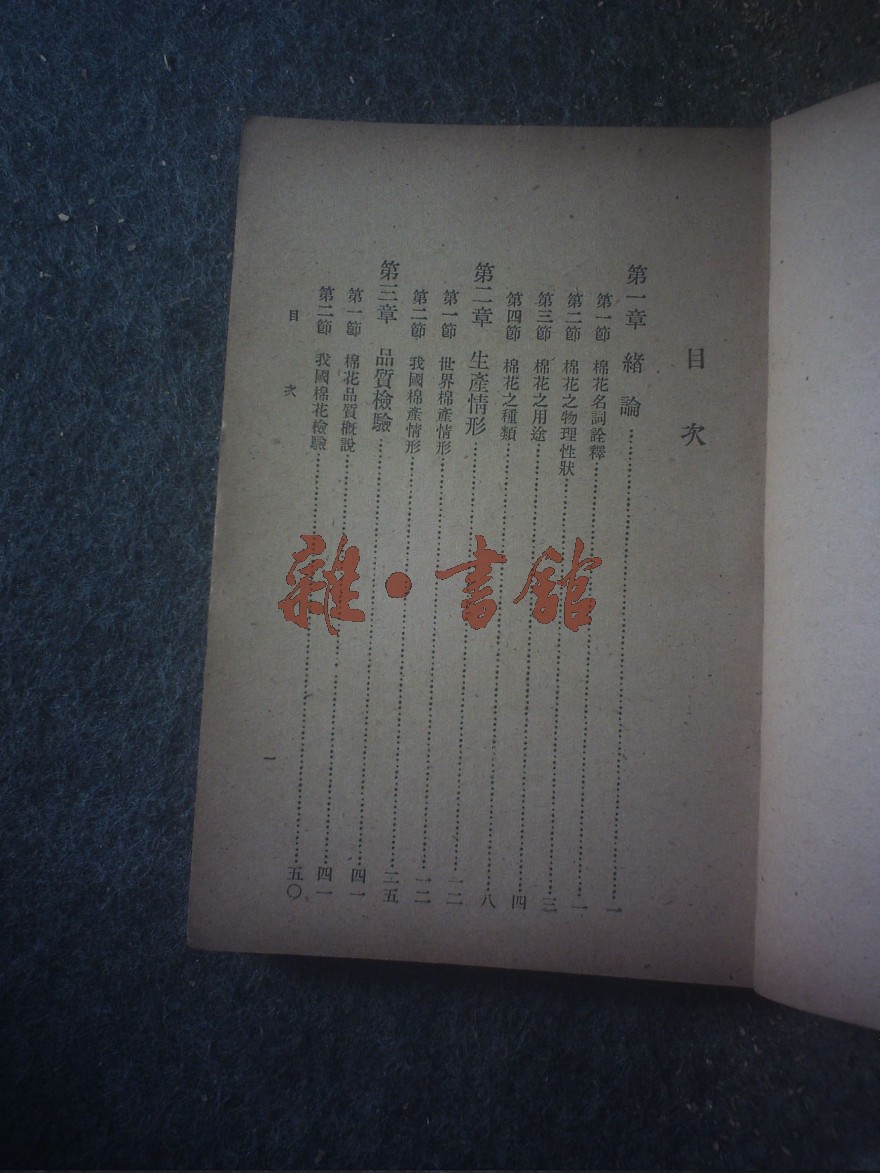 目次
第一章 緒論……一
第一節 棉花名詞詮釋……一
第二節 棉花之物理性狀……三
第三節 棉花之用途……四
第四節 棉花之種類……八
第二章 生產情形……一二
第一節 世界棉產情形……一二
第二節 我國棉產情形……二五
第三章 品質檢驗……四一
第一節 棉花品質概說……四一
第二節 我國棉花檢驗……五〇
目次
一
雜·書館